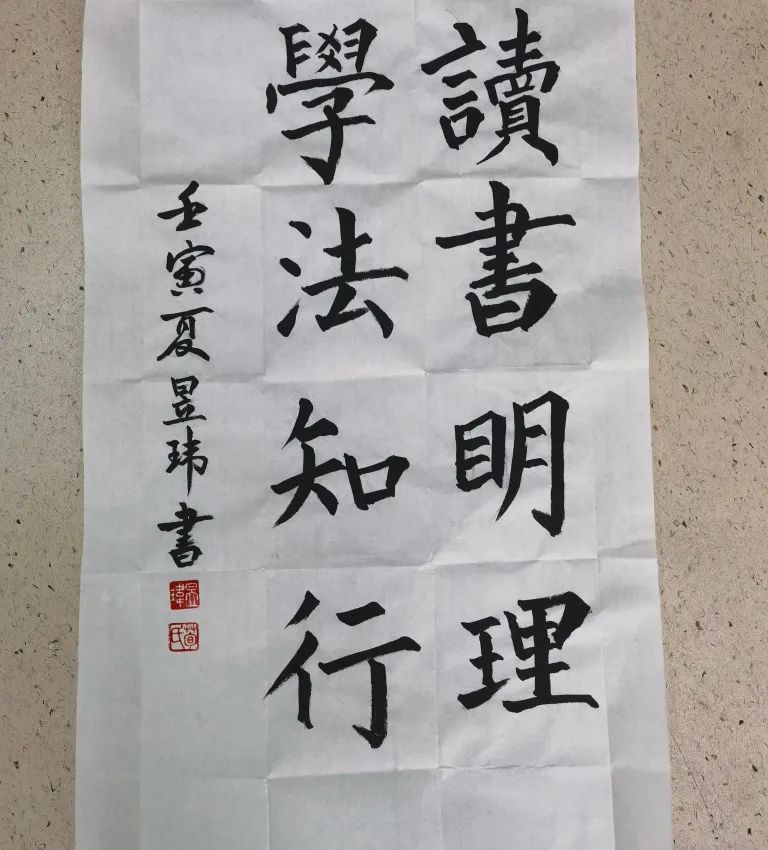 讀書明理
學法知行
壬寅夏昱玮書
昱瑋